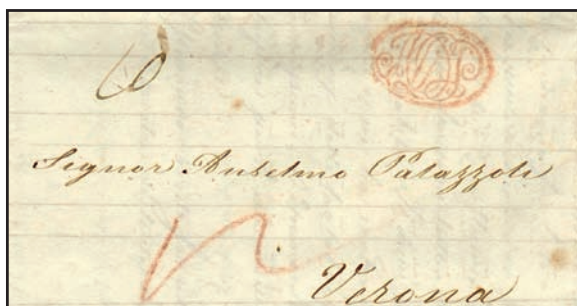 6
Signor Anselmo Palazzoli
Verona